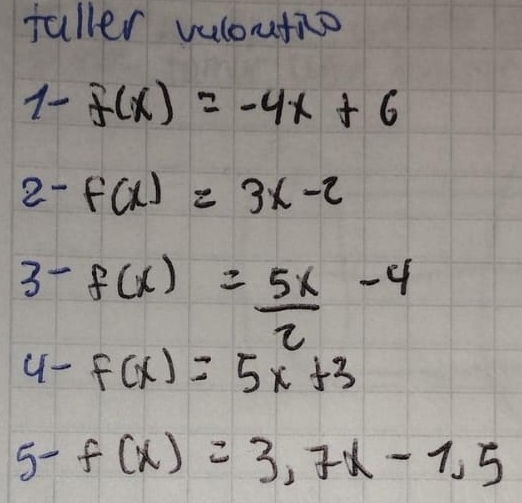 taller valorativo
1- f(x) = -4x + 6
2- f(x) = 3x - 2
3- f(x) = 5x/2 - 4
4- f(x) = 5x + 3
5- f(x) = 3,7x - 1,5